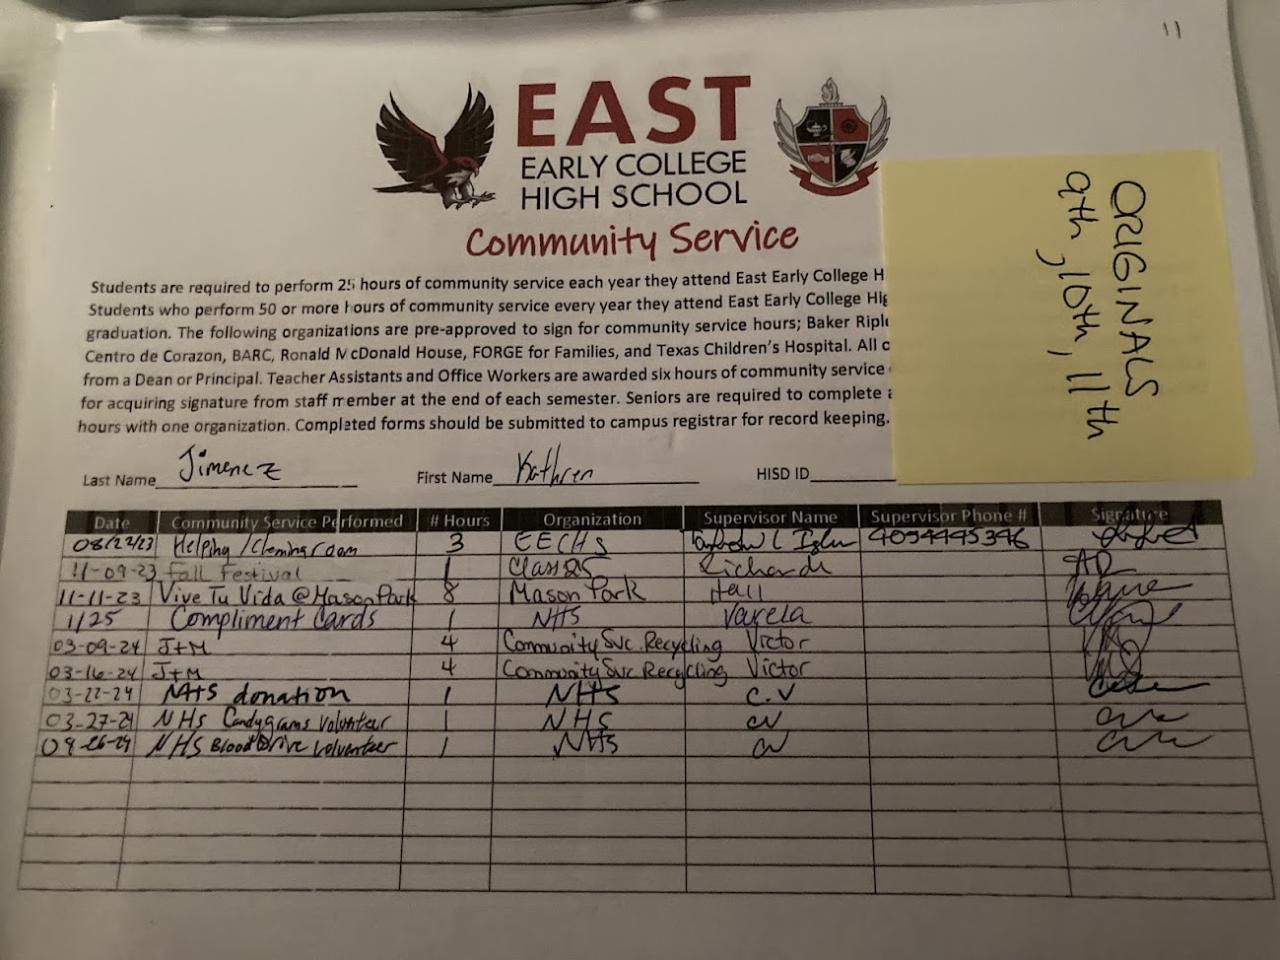 11
EAST
EARLY COLLEGE
HIGH SCHOOL
Community Service
ORIGINALS
9th, 10th, 11th
Students are required to perform 25 hours of community service each year they attend East Early College H
Students who perform 50 or more hours of community service every year they attend East Early College Hig
graduation. The following organizations are pre-approved to sign for community service hours; Baker Riple
Centro de Corazon, BARC, Ronald McDonald House, FORGE for Families, and Texas Children's Hospital. All o
from a Dean or Principal. Teacher Assistants and Office Workers are awarded six hours of community service
for acquiring signature from staff member at the end of each semester. Seniors are required to complete a
hours with one organization. Completed forms should be submitted to campus registrar for record keeping.
Last Name Jimenez First Name Kathren HISD ID
Date Community Service Performed # Hours Organization Supervisor Name Supervisor Phone # Signature
08/22/23 Helping /Cleaning room 3 EECHS 4094445346
11-09-23 Fall Festival 1 Class 25 Richards
11-11-23 Vive Tu Vida @ Mason Park 8 Mason Park Hall
1/25 Compliment Cards 1 NHS Varela
03-09-24 J+M 4 Community Svc. Recycling Victor
03-16-24 J+M 4 Community Svc Recycling Victor
03-22-24 donation 1 NHS C.V
03-27-24 NHS Candygrams Volunteer 1 NHS CV
09-26-24 NHS Blood Drive Volunteer 1 NHS CV